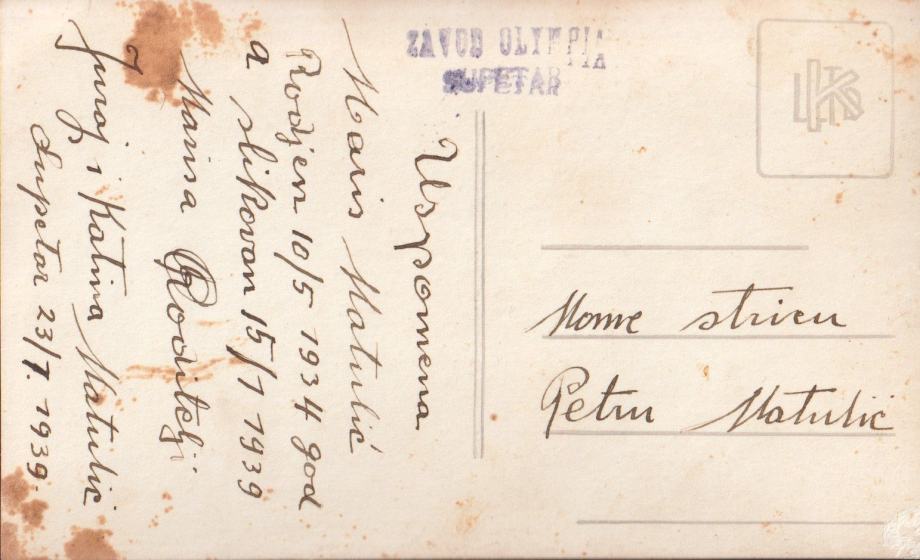 ZAVOD OLYMPIA
SUPETAR
Uspomena
Maris Matulić
Rodjen 10/5 1934 god
a slikovan 15/7 1939
Marisa Roditelji
Juroj i Katina Matulić
Supetar 23/7. 1939.
Mome stricu
Petru Matulić